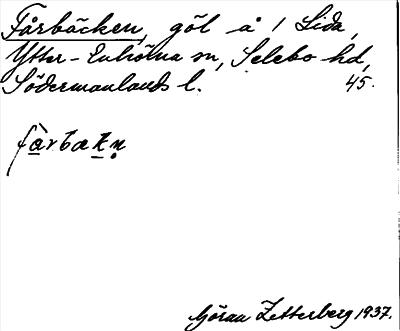 Fårbäcken, göl å 1 Lida,
Ytter-Enhörna sn, Selebo hd,
Södermanlands l. 45.
fàrbakn̥
Göran Zetterberg 1937.